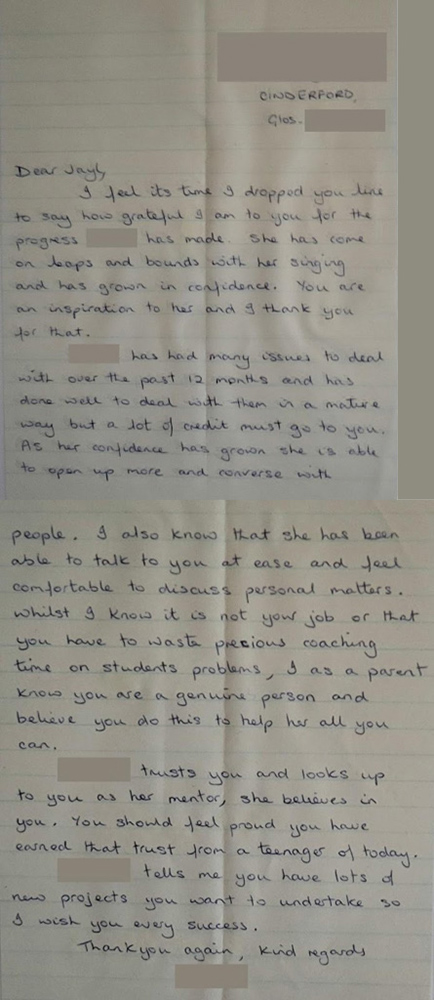 CINDERFORD,
Glos.
Dear Jayli,
I feel its time I dropped you line
to say how grateful I am to you for the
progress has made. She has come
on leaps and bounds with her singing
and has grown in confidence. You are
an inspiration to her and I thank you
for that.
has had many issues to deal
with over the past 12 months and has
done well to deal with them in a mature
way but a lot of credit must go to you.
As her confidence has grown she is able
to open up more and converse with
people. I also know that she has been
able to talk to you at ease and feel
comfortable to discuss personal matters.
Whilst I know it is not your job or that
you have to waste precious coaching
time on students problems, I as a parent
know you are a genuine person and
believe you do this to help her all you
can.
trusts you and looks up
to you as her mentor, she believes in
you. You should feel proud you have
earned that trust from a teenager of today.
tells me you have lots of
new projects you want to undertake so
I wish you every success.
Thankyou again, kind regards